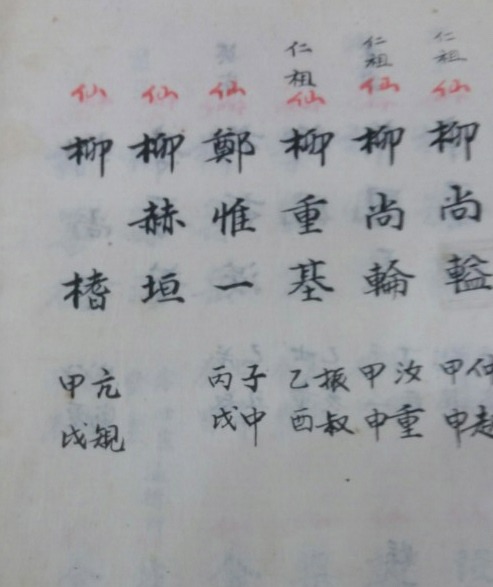 仁祖 仙 柳尚 仲 甲申
仁祖 仙 柳尚輪 汝重 甲申
仁祖 仙 柳重基 振叔 乙酉
仙 鄭惟一 子中 丙戌
仙 柳赫垣
仙 柳 亢 甲戌